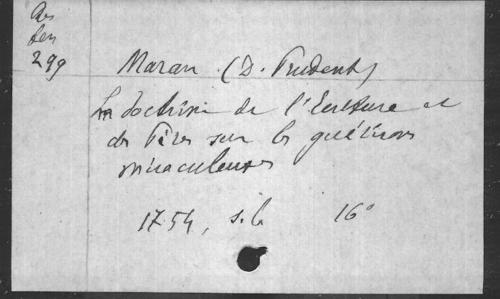 299
Maran (D. Prudent)
La doctrine de l'Ecriture et
des Pères sur les guérisons
miraculeuses
1754, s.l. 16°